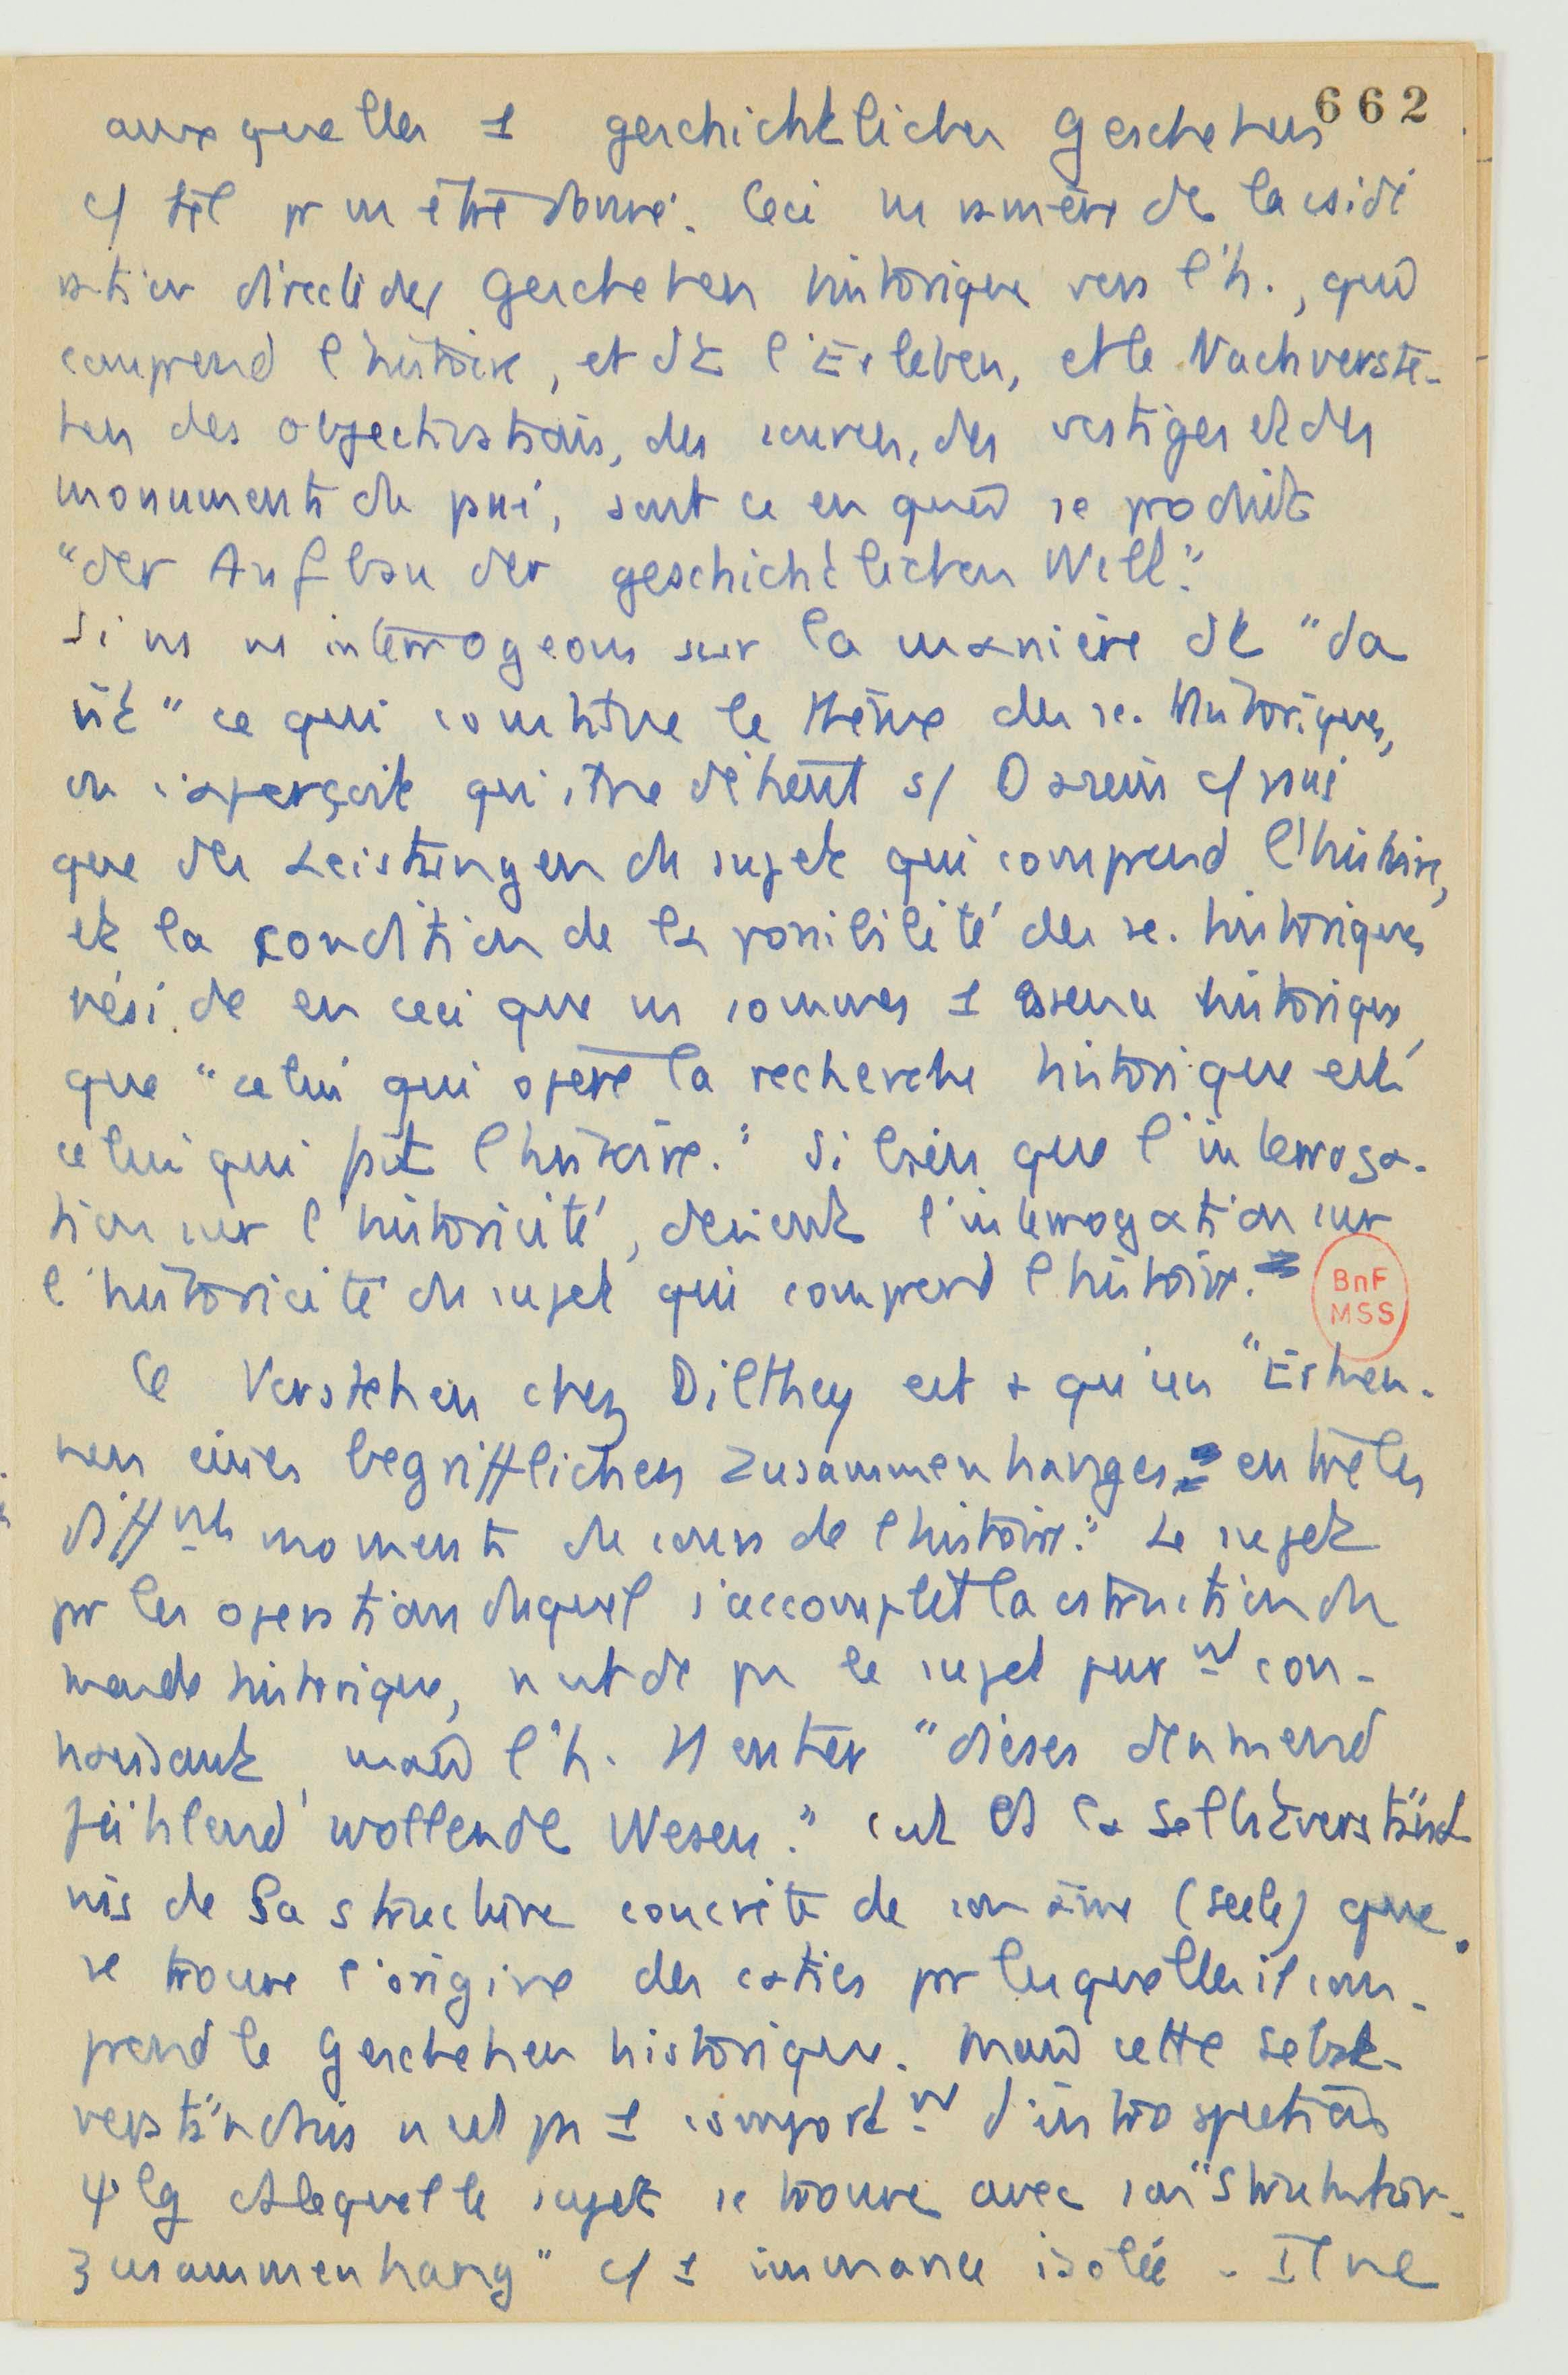 662
auxquelles 1 geschichtliches Geschehen
c/ tel pr ns être donné. Ceci ns ramène de la csidé
ration directe des Geschehen historique vers l'h., qui
comprend l'histoire, et ds l'Erleben, et le Nachverste-
hen des objectivations, des sources, des vestiges et des
monuments du passé, sont ce en quoi se produit
"der Aufbau der geschichtlichen Welt."
Si ns ns interrogeons sur la manière dt "da
ist" ce qui constitue le thème des sc. historiques,
on s'aperçoit qui être détient s/ Dasein c/ passé
que des Leistungen du sujet qui comprend l'histoire,
et la condition de la possibilité des sc. historiques
réside en ceci que ns sommes 1 essence historique,
que "celui qui opère la recherche historique est
celui qui fait l'histoire." Si bien que l'interroga-
tion sur l'historicité, devient l'interrogation sur
l'historicité du sujet qui comprend l'histoire.
BnF
MSS
Ce Verstehen chez Dilthey est + qu'un "Erken-
nen eines begrifflichen Zusammenhanges entre les
différents moments du cours de l'histoire." Le sujet
pr les operations duquel s'accomplit la cstruction du
monde historique, n'est dc pas le sujet purnt con-
naissant, mais l'h. entier "dieses denkend
fühlend wollende Wesen." C'est ds la Selbstverständ
nis de sa structure concrète de son âme (Seele) que
se trouve l'origine des caties pr lesquelles il com-
prend le Geschehen historique. Mais cette Selbst-
verständnis n'est pas 1 comportnt d'introspection
ψ'lg ds lequel le sujet se trouve avec son "Struktur-
zusammenhang" c/ 1 immanence isolée. Il ne